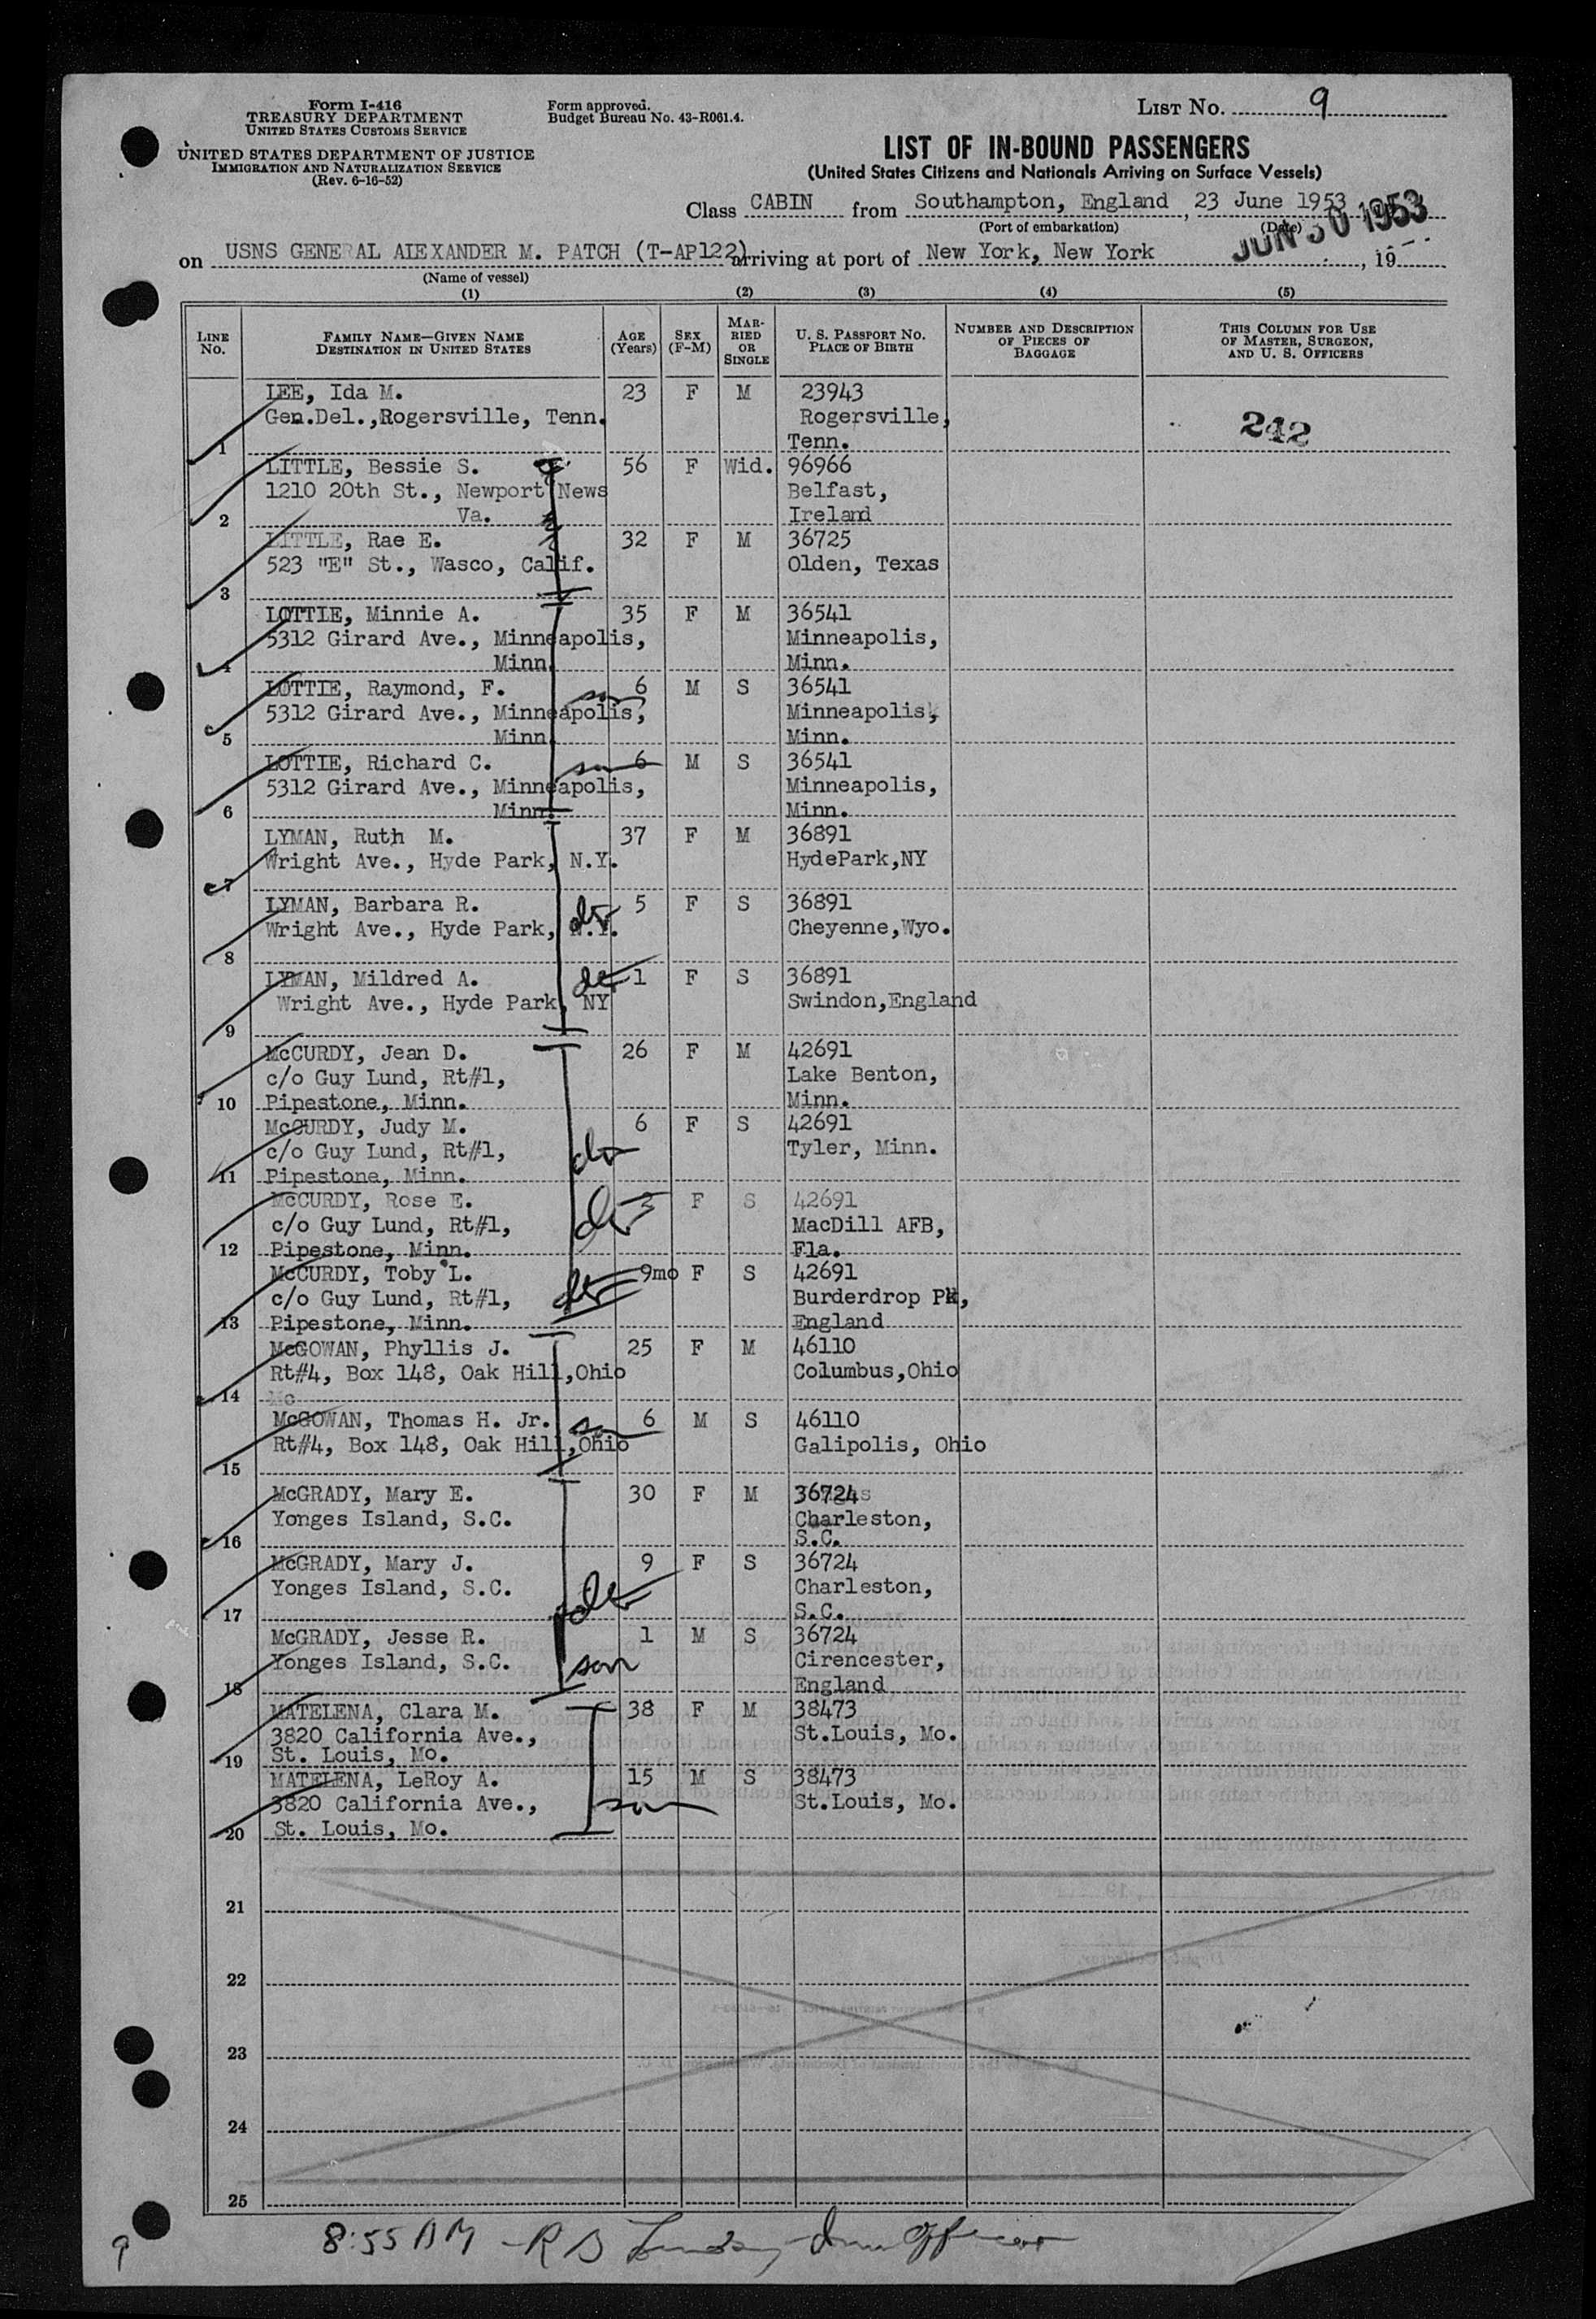 Form I-416
TREASURY DEPARTMENT
UNITED STATES CUSTOMS SERVICE
UNITED STATES DEPARTMENT OF JUSTICE
IMMIGRATION AND NATURALIZATION SERVICE
(Rev. 6-16-52)
Form approved.
Budget Bureau No. 43-R061.4.
LIST No. 9
LIST OF IN-BOUND PASSENGERS
(United States Citizens and Nationals Arriving on Surface Vessels)
Class CABIN from Southampton, England, 23 June 1953
(Port of embarkation) (Date)
JUN 30 1953
on USNS GENERAL ALEXANDER M. PATCH (T-AP122) arriving at port of New York, New York, 19
(Name of vessel)
(1) (2) (3) (4) (5)
LINE No. FAMILY NAME—GIVEN NAME DESTINATION IN UNITED STATES AGE (Years) SEX (F-M) MARRIED OR SINGLE U. S. PASSPORT NO. PLACE OF BIRTH NUMBER AND DESCRIPTION OF PIECES OF BAGGAGE THIS COLUMN FOR USE OF MASTER, SURGEON, AND U. S. OFFICERS
LEE, Ida M. 23 F M 23943
Gen.Del.,Rogersville, Tenn. Rogersville, 242
1 Tenn.
LITTLE, Bessie S. 56 F Wid. 96966
1210 20th St., Newport News Belfast,
2 Va. Ireland
LITTLE, Rae E. 32 F M 36725
523 "E" St., Wasco, Calif. Olden, Texas
3
LOTTIE, Minnie A. 35 F M 36541
5312 Girard Ave., Minneapolis, Minneapolis,
4 Minn. Minn.
LOTTIE, Raymond, F. son 6 M S 36541
5312 Girard Ave., Minneapolis, Minneapolis,
5 Minn. Minn.
LOTTIE, Richard C. son 6 M S 36541
5312 Girard Ave., Minneapolis, Minneapolis,
6 Minn. Minn.
LYMAN, Ruth M. 37 F M 36891
Wright Ave., Hyde Park, N.Y. HydePark,NY
7
LYMAN, Barbara R. dtr 5 F S 36891
Wright Ave., Hyde Park, N.Y. Cheyenne,Wyo.
8
LYMAN, Mildred A. dtr 1 F S 36891
Wright Ave., Hyde Park, NY Swindon,England
9
McCURDY, Jean D. 26 F M 42691
c/o Guy Lund, Rt#1, Lake Benton,
10 Pipestone, Minn. Minn.
McCURDY, Judy M. 6 F S 42691
c/o Guy Lund, Rt#1, dtr Tyler, Minn.
11 Pipestone, Minn.
McCURDY, Rose E. dtr 3 F S 42691
c/o Guy Lund, Rt#1, MacDill AFB,
12 Pipestone, Minn. Fla.
McCURDY, Toby L. dtr 9mo F S 42691
c/o Guy Lund, Rt#1, Burderdrop Pk,
13 Pipestone, Minn. England
McGOWAN, Phyllis J. 25 F M 46110
Rt#4, Box 148, Oak Hill,Ohio Columbus,Ohio
14 Mc
McGOWAN, Thomas H. Jr. son 6 M S 46110
Rt#4, Box 148, Oak Hill,Ohio Galipolis, Ohio
15
McGRADY, Mary E. 30 F M 36724
Yonges Island, S.C. Charleston,
16 S.C.
McGRADY, Mary J. 9 F S 36724
Yonges Island, S.C. dtr Charleston,
17 S.C.
McGRADY, Jesse R. 1 M S 36724
Yonges Island, S.C. son Cirencester,
18 England
MATELENA, Clara M. 38 F M 38473
3820 California Ave., St.Louis, Mo.
19 St. Louis, Mo.
MATELENA, LeRoy A. 15 M S 38473
3820 California Ave., son St.Louis, Mo.
20 St. Louis, Mo.
21
22
23
24
25
8:55 AM - R D Officer
9